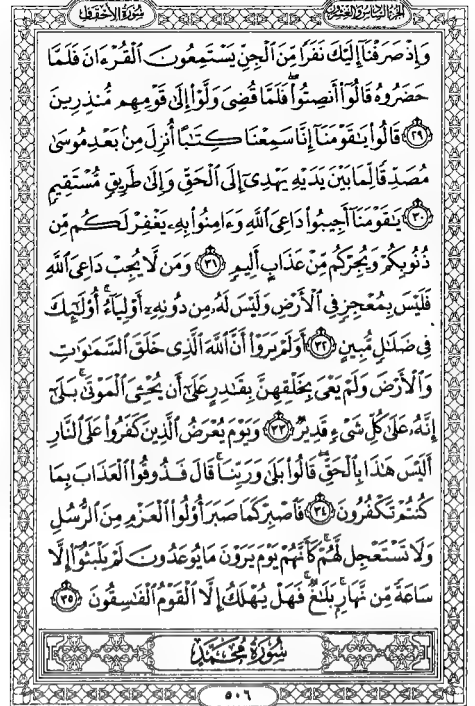 سُورَةُ الأَحْقَافِ
الجُزءُ السَّادِسُ وَالعِشرُونَ
وَإِذْ صَرَفْنَآ إِلَيْكَ نَفَرًا مِّنَ ٱلْجِنِّ يَسْتَمِعُونَ ٱلْقُرْءَانَ فَلَمَّا
حَضَرُوهُ قَالُوٓا۟ أَنصِتُوا۟ۖ فَلَمَّا قُضِىَ وَلَّوْا۟ إِلَىٰ قَوْمِهِم مُّنذِرِينَ
﴿٢٩﴾ قَالُوا۟ يَٰقَوْمَنَآ إِنَّا سَمِعْنَا كِتَٰبًا أُنزِلَ مِنۢ بَعْدِ مُوسَىٰ
مُصَدِّقًا لِّمَا بَيْنَ يَدَيْهِ يَهْدِىٓ إِلَى ٱلْحَقِّ وَإِلَىٰ طَرِيقٍ مُّسْتَقِيمٍ
﴿٣٠﴾ يَٰقَوْمَنَآ أَجِيبُوا۟ دَاعِىَ ٱللَّهِ وَءَامِنُوا۟ بِهِۦ يَغْفِرْ لَكُم مِّن
ذُنُوبِكُمْ وَيُجِرْكُم مِّنْ عَذَابٍ أَلِيمٍ ﴿٣١﴾ وَمَن لَّا يُجِبْ دَاعِىَ ٱللَّهِ
فَلَيْسَ بِمُعْجِزٍ فِى ٱلْأَرْضِ وَلَيْسَ لَهُۥ مِن دُونِهِۦٓ أَوْلِيَآءُۚ أُو۟لَٰٓئِكَ
فِى ضَلَٰلٍ مُّبِينٍ ﴿٣٢﴾ أَوَلَمْ يَرَوْا۟ أَنَّ ٱللَّهَ ٱلَّذِى خَلَقَ ٱلسَّمَٰوَٰتِ
وَٱلْأَرْضَ وَلَمْ يَعْىَ بِخَلْقِهِنَّ بِقَٰدِرٍ عَلَىٰٓ أَن يُحْۦِىَ ٱلْمَوْتَىٰۚ بَلَىٰٓ
إِنَّهُۥ عَلَىٰ كُلِّ شَىْءٍ قَدِيرٌ ﴿٣٣﴾ وَيَوْمَ يُعْرَضُ ٱلَّذِينَ كَفَرُوا۟ عَلَى ٱلنَّارِ
أَلَيْسَ هَٰذَا بِٱلْحَقِّۖ قَالُوا۟ بَلَىٰ وَرَبِّنَاۚ قَالَ فَذُوقُوا۟ ٱلْعَذَابَ بِمَا
كُنتُمْ تَكْفُرُونَ ﴿٣٤﴾ فَٱصْبِرْ كَمَا صَبَرَ أُو۟لُوا۟ ٱلْعَزْمِ مِنَ ٱلرُّسُلِ
وَلَا تَسْتَعْجِل لَّهُمْۚ كَأَنَّهُمْ يَوْمَ يَرَوْنَ مَا يُوعَدُونَ لَمْ يَلْبَثُوٓا۟ إِلَّا
سَاعَةً مِّن نَّهَارٍۭۚ بَلَٰغٌۚ فَهَلْ يُهْلَكُ إِلَّا ٱلْقَوْمُ ٱلْفَٰسِقُونَ ﴿٣٥﴾
سُورَةُ مُحَمَّدٍ
٥٠٦